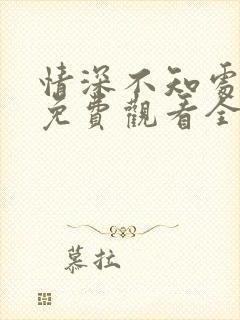 情深不知處
免費觀看全
慕拉